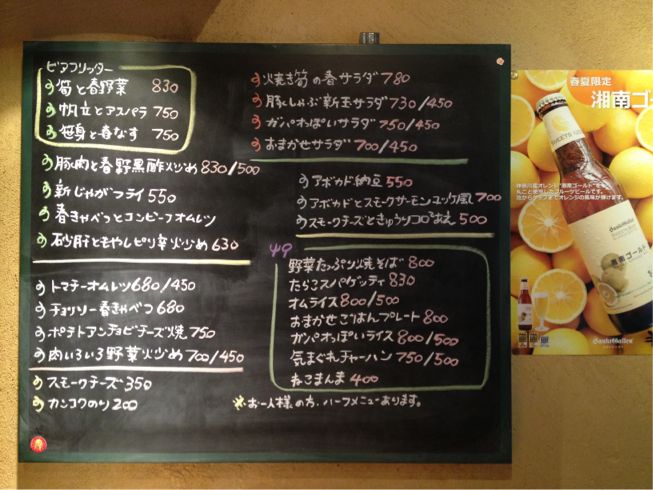 ビアフリッター
筍と春野菜 830
帆立とアスパラ 750
笹身と春なす 750
豚肉と春野黒酢メジめ 830/500
新じゃがフライ 550
春きゃべっとコンビーフオムレツ
砂肝ともやしピリ辛火少め 630
トマチーオムレツ 680/450
チョリソー春きゃべつ 680
ポテトアンチョビチーズ焼 750
肉いろいろ野菜火少め 700/450
スモークチーズ 350
カンコクのり 200
焼き筍の春サラダ 780
豚しゃぶ新玉サラダ 730/450
ガパオっぽいサラダ 750/450
おまかせサラダ 700/450
アボカド納豆 550
アボカドとスモークサーモンユッケ風 700
スモークチーズときゅうりコロコロあえ 500
野菜たっぷり焼そば 800
たらこスパゲッティ 830
オムライス 800/500
おまかせごはんプレート 800
ガパオっぽいライス 800/500
気まぐれチャーハン 750/500
ねこまんま 400
※お一人様の方、ハーフメニューあります。
春夏限定
湘南ゴ
神奈川産オレンジ"湘南ゴールド"を
丸ごと使用したフルーツビールです。
湘南ゴールド
SanktGallen